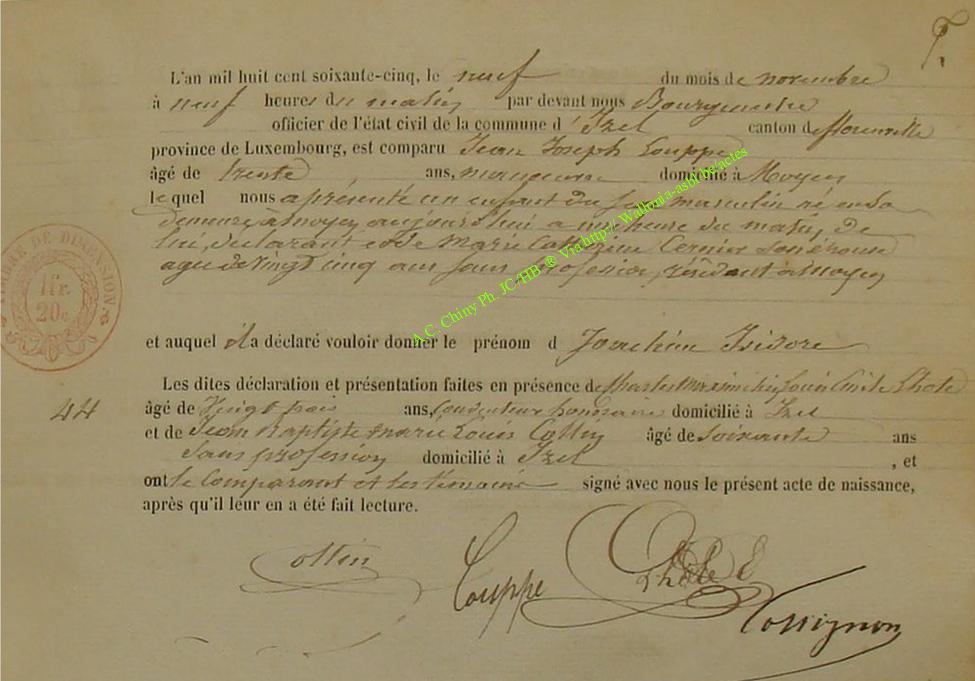 L'an mil huit cent soixante-cinq, le neuf du mois de novembre
à neuf heures du matin par devant nous Bourgmestre
officier de l'état civil de la commune d'Izel canton de florenville
province de Luxembourg, est comparu Jean Joseph Couppe
âgé de trente ans, manoeuvre domicilié à Moyen
lequel nous a présenté un enfant du sexe masculin né en sa
demeure à Moyen aujourd'hui a une heure du matin, de
lui, déclarant et de Marie Catherine son épouse
agée de Vingt cinq ans sans profession, résidant à Moyen
TIMBRE DE DIMENSION
1 fr.
20 c
et auquel il a déclaré vouloir donner le prénom d Joachim Isidore
Les dites déclaration et présentation faites en présence de Charles Louis Emile Lhote
44 âgé de Vingt trois ans, domicilié à Izel
et de Jean Baptiste Marie Louis Collin âgé de soixante ans
Sans profession domicilié à Izel , et
ont le Comparant et les témoins signé avec nous le présent acte de naissance,
après qu'il leur en a été fait lecture.
Collin Couppe Lhote E
Tossignon
A.C. Chiny Ph. JC HB ® Via http:// Wallonia-asbl.be/actes